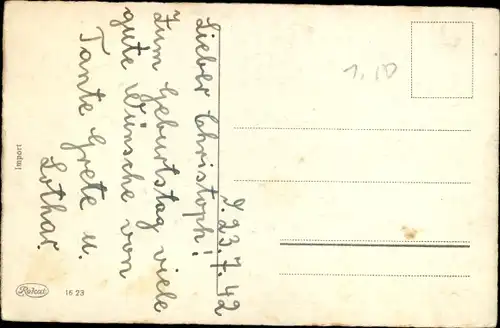 D. 23. 7. 42
Lieber Christoph!
Zum Geburtstag viele
gute Wünsche von
Tante Grete u.
Lothar.
1.10
Import
16 23